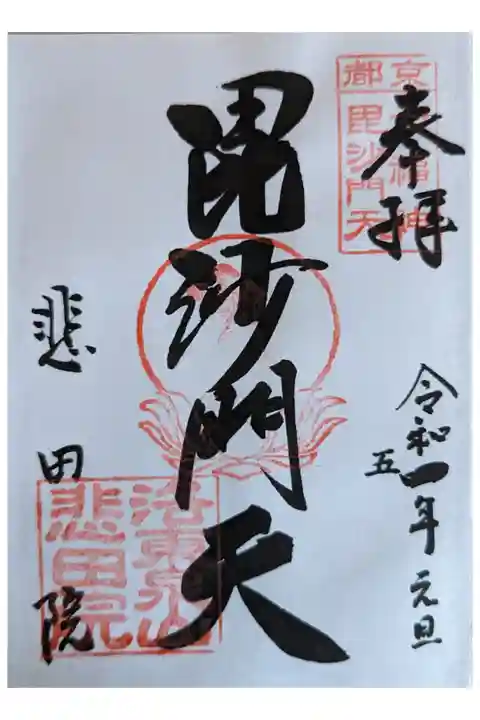 奉拝
京都
七福神
毘沙門天
令和一年 元旦
五
毘沙門天
悲田院
洛東泉山
悲田院